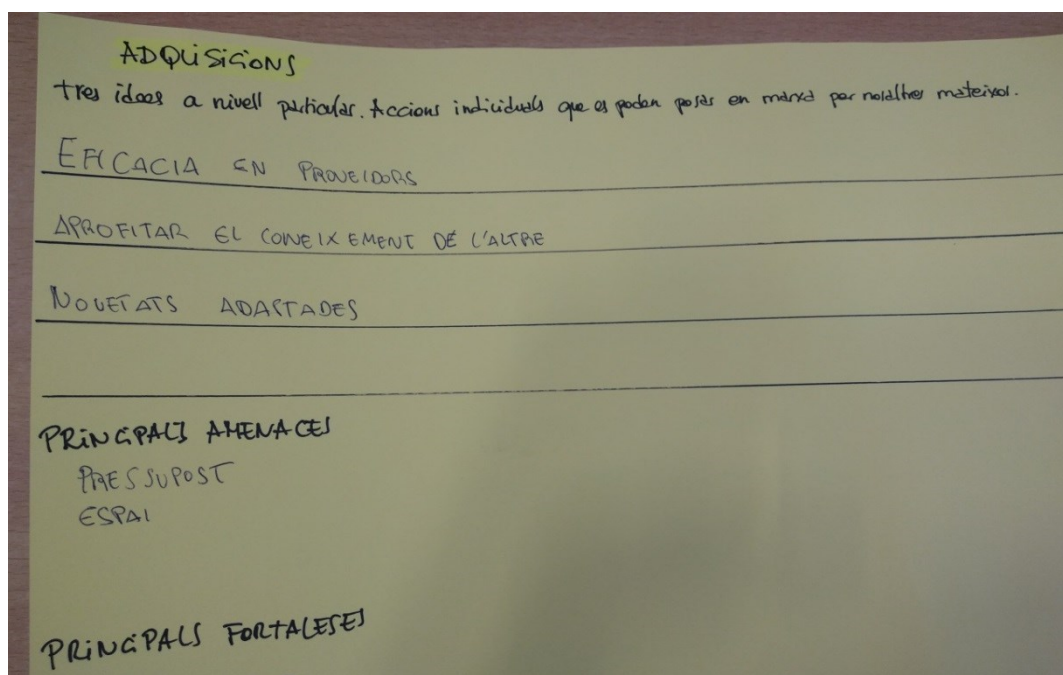 ADQUISICIONS
tres idees a nivell particular. Accions individuals que es poden posar en marxa per nosaltres mateixos.
EFICACIA EN PROVEIDORS
APROFITAR EL CONEIXEMENT DE L'ALTRE
NOVETATS ADAPTADES
PRINCIPALS AMENACES
PRESSUPOST
ESPAI
PRINCIPALS FORTALESES